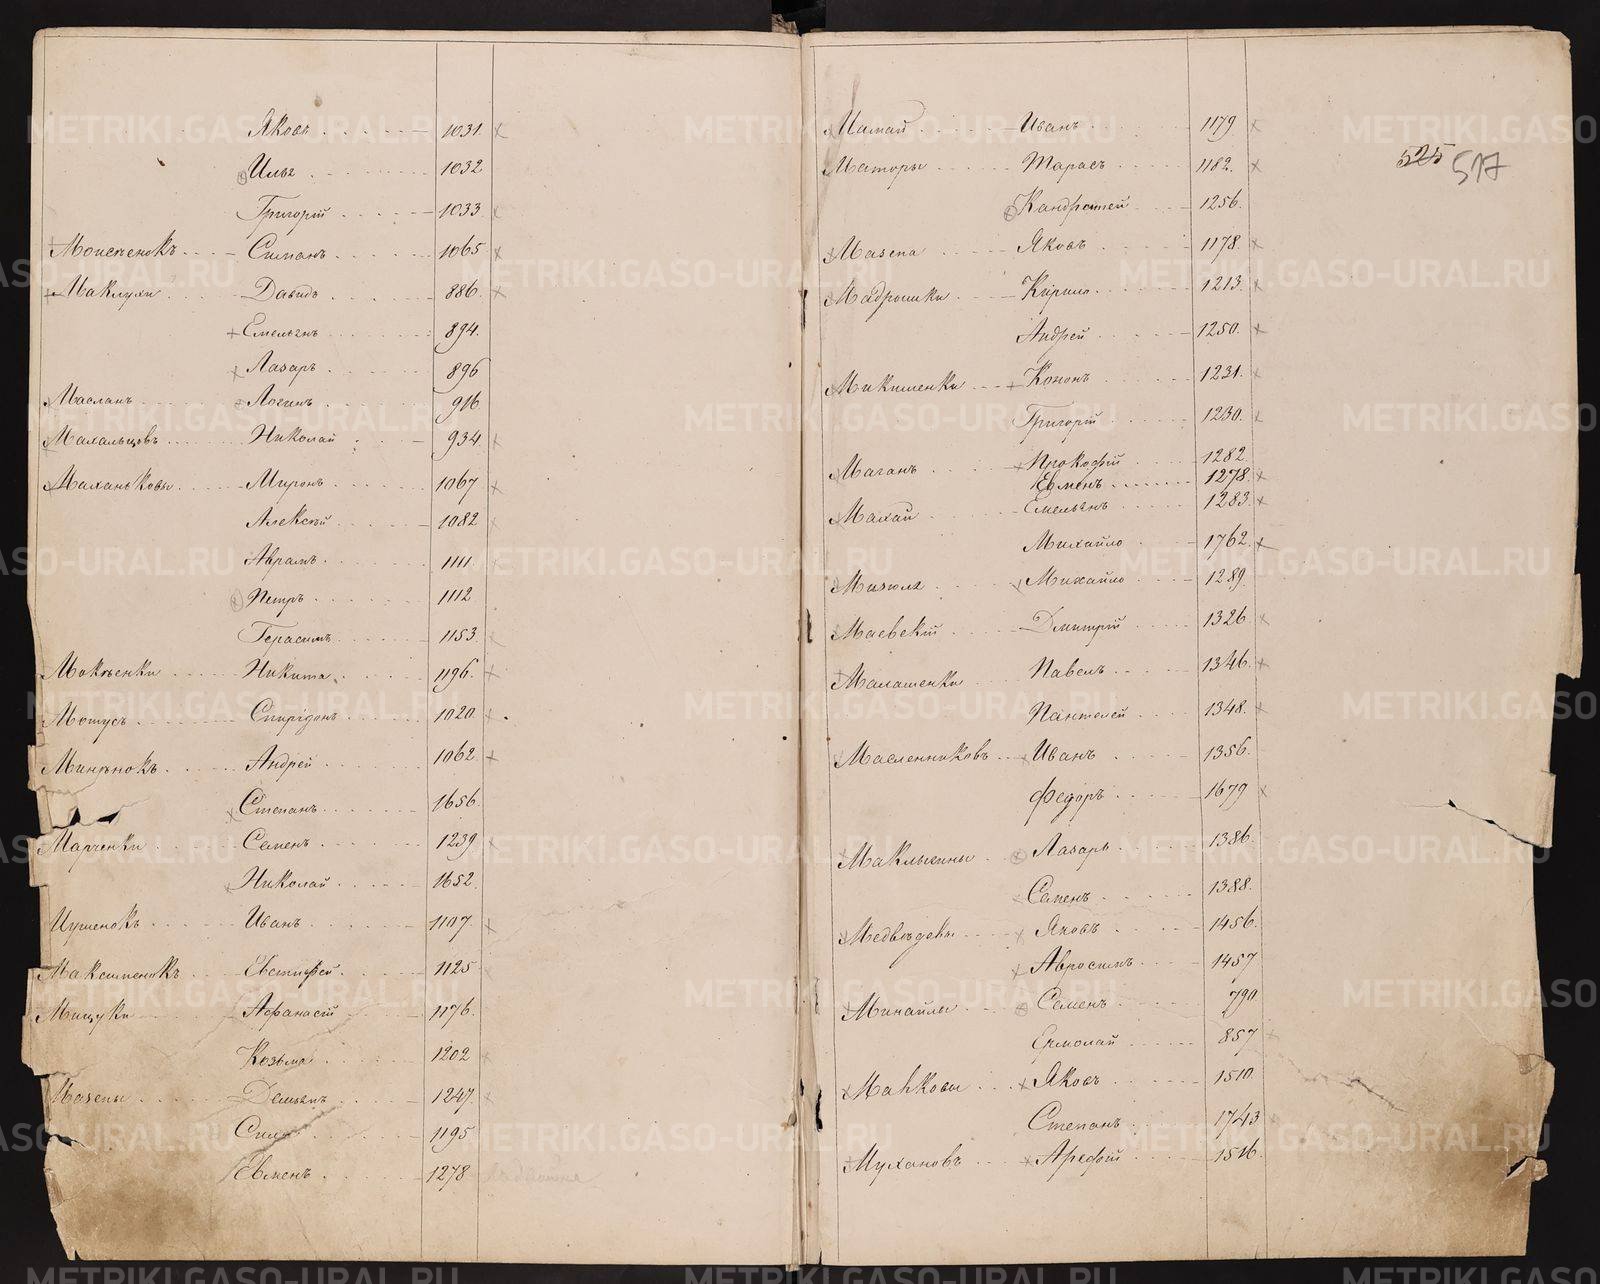 Яковъ 1031.
Илья 1032
Григорій 1033
Моисеенокъ Симанъ 1065
Маклухи Давидъ 886.
Емельянъ 894.
Лазарь 896
Масланъ Логинъ 916
Махальцовъ Николай 934
Маханьковы Миронъ 1067
Алексѣй 1082
Аврамъ 1111
Петръ 1112
Герасимъ 1153
Мокѣенки Никита 1196.
Мотусъ Спиридонъ 1020
Минѣнокъ Андрей 1062
Степанъ 1656.
Марченки Семенъ 1239
Николай 1652
Иванъ 1107.
Евстифей 1125
Мищуки Афанасій 1176.
Козьма 1202
Мазепы Демьянъ 1247.
Сила 1195
Евменъ 1278
Мамай Иванъ 1179
525 517
Маторы Тарасъ 1182.
Кандратей 1256.
Мазепа Яковъ 1178
Мадроники Кирилъ 1213.
Андрей 1250.
Микишенки Кононъ 1231.
Григорій 1230.
Маганъ Прокофій 1282
Евменъ 1278.
Махай Емельянъ 1283.
Михайло 1762.
Мизюля Михайло 1289
Маевскій Дмитрій 1326
Малашенки Павелъ 1346.
Пантелей 1348.
Масленниковъ Иванъ 1356.
Федоръ 1679
Лазарь 1386.
Семенъ 1388.
Медвѣдевы Яковъ 1456.
Авросимъ 1457
Минайлы Семенъ 790
Ермолай 857
Маньковы Яковъ 1510.
Степанъ 1743
Мухановъ Арефій 1516.
METRIKI.GASO-URAL.RU